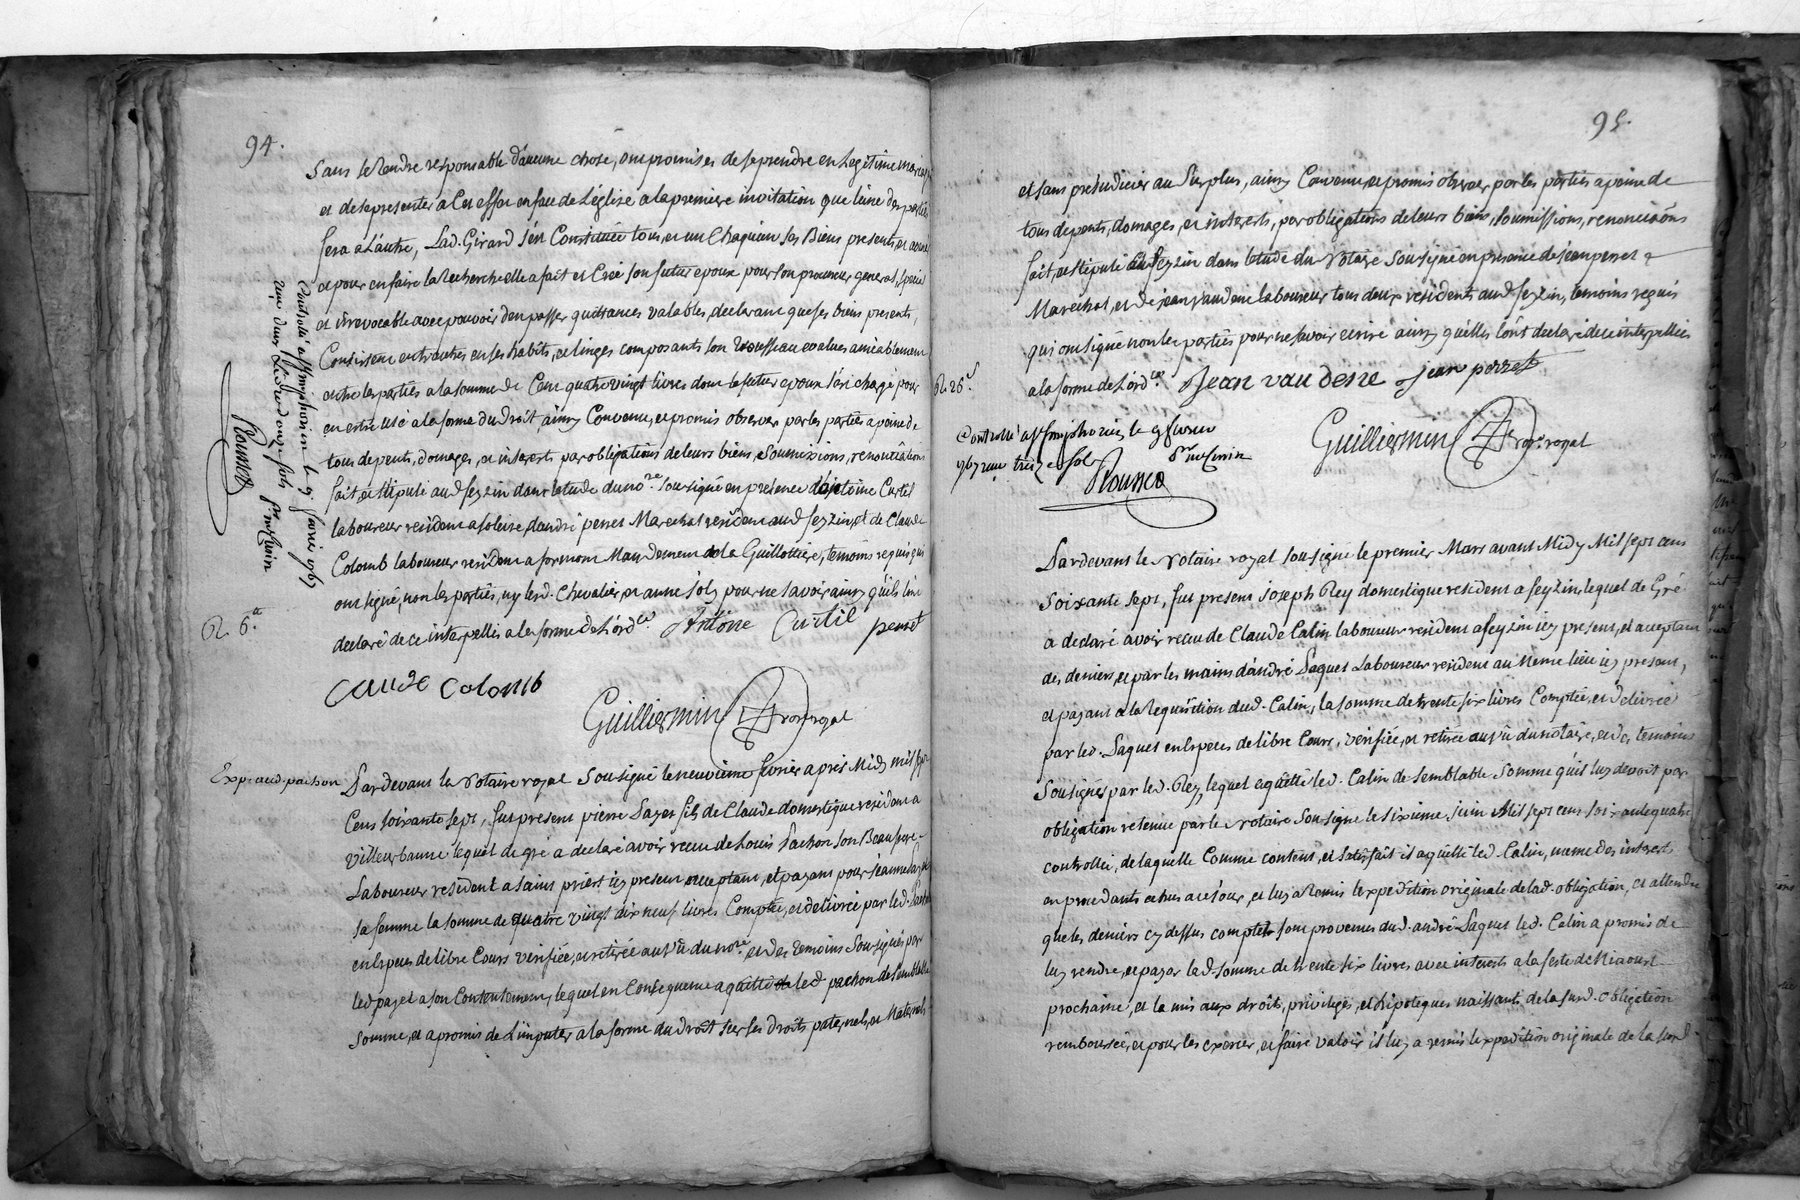 94.
Sans le Rendre responsable d'aucune chose, ont promis es de se prendre en Legitime mariage
et de se presenter a Cet effet en face de L'église a la premiere invitation que l'une des parties
fera a L'autre, Lad. Girard s'est Constituée tous, et un Chaquun ses Biens presents, et avenir
et pour en faire la Recherche elle a fait et Créé son futur epoux pour son procureur general, special
et irrevocable avec pouvoir d'en passer quittances valables, declarant que ses biens presents,
Consistent entr'autres en ses habits, et linges composants son trousseau evalues amiablement
entre les parties a la somme de Cent quatre vingt livres dont le futur epoux s'est chargé pour
en estre usé a la forme du Droit, ainsy Convenu, et promis observer par les parties a peine de
tous depents, domages, et interests par obligations de leurs biens, Soumissions, renontiations
fait, et stipulé aud. feyzin dans l'etude du no.re sousigné en presence d'Antoine Curtil
laboureur resident a soleise, d'andré perret Marechal resident aud. feyzin, et de Claude
Colomb laboureur resident a Mandement de la Guillottiere, temoins requis qui
ont signé, non les parties, ny led. Chevalier, et anne Joly pour ne savoir ainsy qu'ils l'ont
declaré de ce interpellés a la forme de L'ord.ce Antoine Curtil perret
Controllé a st simphorien le 9 fevrier 1767
reçu deux Livres douze sols
Rousset
R. 6.tt
Claude Colomb
Guilliermin no.re royal
Exp. aud. pachon
Pardevant le Notaire royal Sousigné le neuvieme fevrier apres Midy mil sept
Cent soixante sept, fut present pierre Payet fils de Claude domestique resident a
Villeurbanne lequel de gré a declaré avoir receu de Louis Pachon son Beau frere
Laboureur resident a saint priest icy present acceptant, et payant pour jeanne Payet
sa femme la somme de quatre vingt dix neuf livres Comptée, et delivrée par led. Pachon
en Especes de libre Cours verifiée, et retirée au vû du no.re et des temoins Sousignés par
led. payet a son Contentement, lequel en Consequence a quitté led. pachon de Semblable
somme, et a promis de L'imputer a la forme du droit sur ses droits paternels, et Maternels
95.
et sans prejudicier au Surplus, ainsy Convenu, et promis observer par les parties a peine de
tous depents, domages, et interests, par obligations de leurs biens, soumissions, renonciations
fait, et stipulé a feyzin dans l'etude du Notaire Sousigné en presence de jean perret
Marechal, et de jean vaudene laboureur tous deux residents aud. feyzin, temoins requis
qui ont signé non les parties pour ne savoir ecrire ainsy qu'elles l'ont declaré de ce interpellées
a la forme de L'ord.ce Jean vaudene Jean perret
R. 26.s
Guilliermin no.re royal
Controllé a st simphorien le 9 fevrier
1767 reçu treize sols
Rousset
Pardevant le Notaire royal sousigné le premier Mars avant Midy Mil sept cent
Soixante sept, fut present Joseph Rey domestique resident a feyzin, lequel de Gré
a declaré avoir receu de Claude Calin laboureur resident a feyzin icy present, et acceptant
des deniers, et par les mains d'andré Paquet Laboureur resident au Meme lieu icy present,
et payant a la Requisition dud. Calin, la somme de trente six livres Comptée, et delivrée
par led. Paquet en Especes de libre Cours, verifiée, et retirée au vû du notaire, et des temoins
Sousignés par led. Rey, lequel a quitté led. Calin de semblable Somme qu'il luy devoit par
obligation retenue par le Notaire Sousigné le sixieme juin Mil sept cent soixante quatre
controllée, de laquelle Comme content, et satisfait il a quitté led. Calin, meme des interests
en procedants echus a ce jour, et luy a Remis l'expedition originale de lad. obligation, et attendu
que les deniers cy dessus comptés sont provenus dud. andré Paquet led. Calin a promis de
luy rendre, et payer lad. somme de trente six livres avec interests a la feste de
prochaine, et le mis aux droits, privileges, et hipoteques naissants de la susd. obligation
remboursée, et pour les exercer, et faire valoir il luy a remis l'expedition originale de la susd.